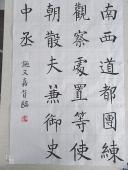 南西道都團練
觀察處置等使
朝散夫兼御史
中丞